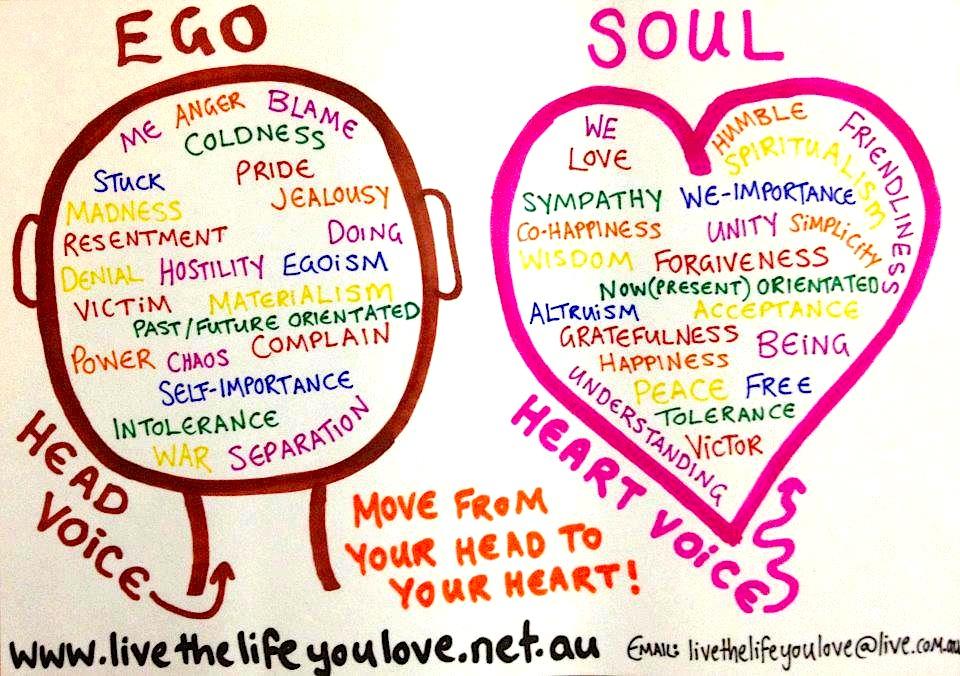 EGO
ME ANGER BLAME
COLDNESS
STUCK PRIDE
MADNESS JEALOUSY
RESENTMENT DOING
DENIAL HOSTILITY EGOISM
VICTIM MATERIALISM
PAST/FUTURE ORIENTATED
POWER CHAOS COMPLAIN
SELF-IMPORTANCE
INTOLERANCE
WAR SEPARATION
HEAD
VOICE
SOUL
WE HUMBLE FRIENDLINESS
LOVE SPIRITUALISM
SYMPATHY WE-IMPORTANCE
CO-HAPPINESS UNITY SIMPLICITY
WISDOM FORGIVENESS
NOW(PRESENT) ORIENTATED
ALTRUISM ACCEPTANCE
GRATEFULNESS BEING
HAPPINESS
UNDERSTANDING PEACE FREE
TOLERANCE
VICTOR
HEART VOICE
MOVE FROM
YOUR HEAD TO
YOUR HEART!
www.livethelifeyoulove.net.au
EMAIL: livethelifeyoulove@live.com.au